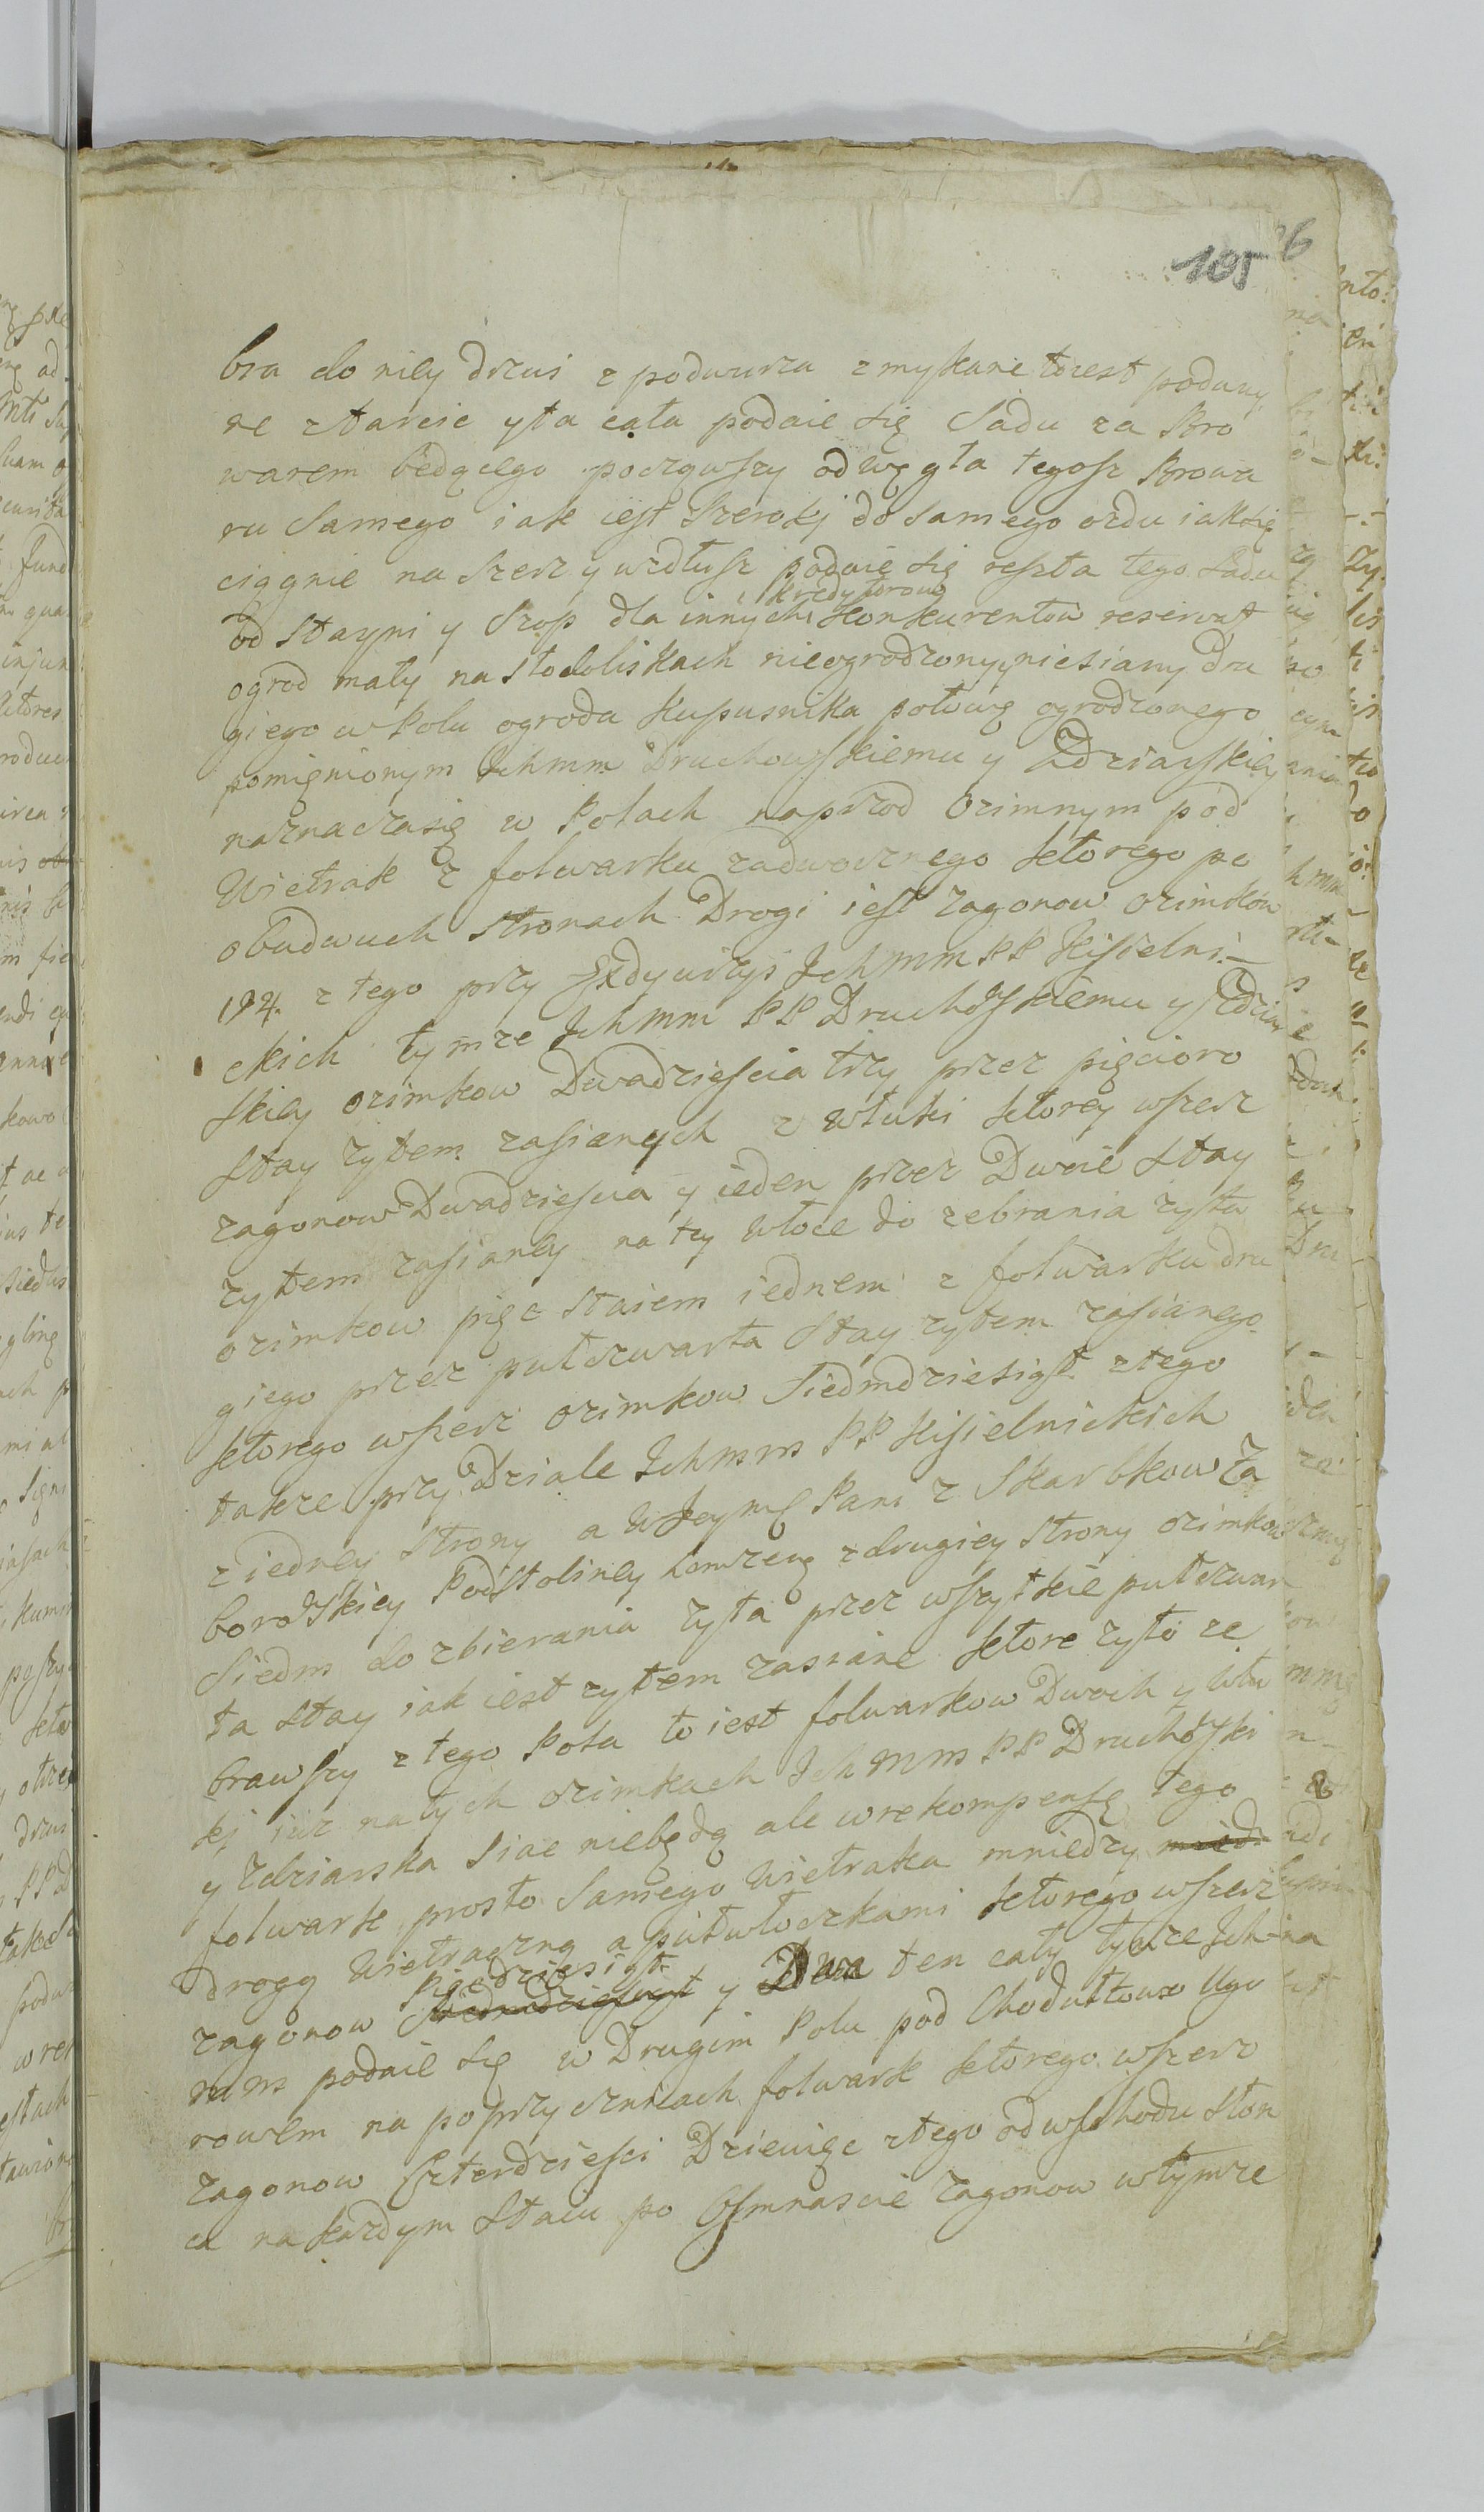 105
bra do niey drzwi z podwurza zmykane to iest podwuy
ne ztarcic yta cała podaie się Sadu za Bro
warem będącego począwszy odwęgła tegosz Browa
ru Samego iak iest Szeroki do samego ordu iak się
ciągnie na szerz y wzdłusz podaie się reszta tego Sadu
od Stayni y Szop dla innych kredytorow konkurentow reserwat
ogrod mały na Stodoliskach nieogrodzony niesiany dru
giego w Polu ogroda kapusnika połowę ogrodzonego
pomięnionym Ichmm Druchowskiemu y Zdziarskiey
naznacza się w Polach naprzod Ozimnym pod
Wietrak z folwarku zadwornego ktorego po
obudwuch stronach Drogi iest zagonow ozimkow
194. z tego przy Exdywizyi Ichmm PP Kisielni-
ckich tymze Ichmm PP Druchowskiemu y Zdziar
skiey ozimkow Dwadziescia trzy przez pięcioro
Stay zytem zasianych z włuki ktorey wszerz
zagonow Dwadziescia y ieden przez Dwoie Stay
zytem zasianey na tey włoce do zebrania zyta
ozimkow pięc staiem iednem z folwarku dru
giego przez pułczwarta Stay zytem zasianego
ktorego wszerz ozimkow Siedmdziesiąt ztego
takze przy Dziale Ichmm PP Kisielnickich
ziedney Strony a WJeymć Pani z Skarbkow Za
borowskiey Podstoliney Łomzeng zdrugiey Strony ozimkow
Siedm do zbierania zyta przez wszytkie pułczwar
ta Stay iak iest zytem zasiane ktore zyto ze
brawszy z tego Pola to iest folwarkow Dwoch y Włu
ki iuz natych ozimkach Ichmm PP Druchowski
y Zdziarska Siac niebędą ale wrekompensę tego
folwark prosto Samego Wietraka mniedzy miedz
drogą Wietraczną a pułwłoczkami ktorego wszerz
zagonow Siedmdziesiąt Pięcdziesiąt y Dwa ten cały tymze Ich
mm podaie się w Drugim Polu pod Chodułtowo Ugo
rowem na poprzycznicach folwark ktorego wszerz
zagonow Szterdziesci Dziewięc ztego odwschodu Słon
ca nakazdym Staiu po Osmnascie zagonow wtymze